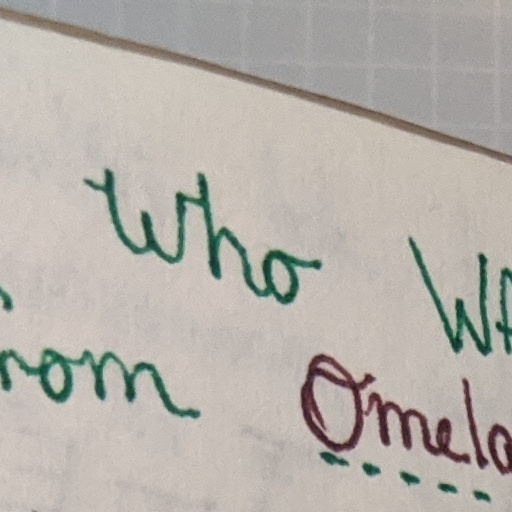 Who WA
rom Omela